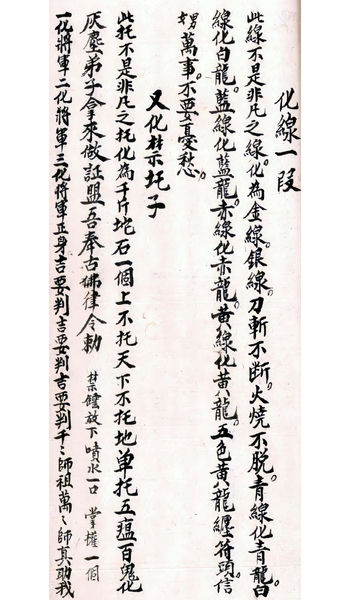 化線一段
此線不是非凡之線。化為金線。銀線。刀斬不断。火燒不脫。青線化青龍。白
線化白龍。藍線化藍龍。赤線化赤龍。黄線化黄龍。五色黄龍纏符頭。信
男萬事不要憂愁。
又化禁坛子
此托不是非凡之托化為千斤坨石一個上不托天下不托地单托五瘟百鬼化
灰塵弟子拿來做証盟吾奉古佛律令勅 禁罈放下噴水一口 掌權一個
一化將軍二化將軍三化將軍正身吉要判吉要判吉要判千〻師祖萬〻師真助我